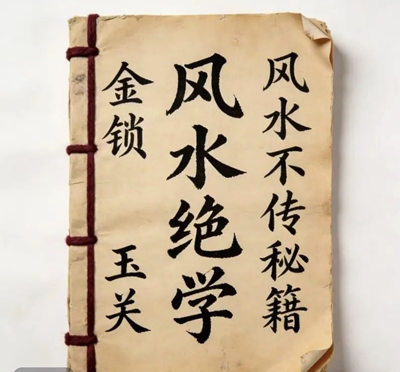 风水不传秘籍
风水绝学
金锁 玉关